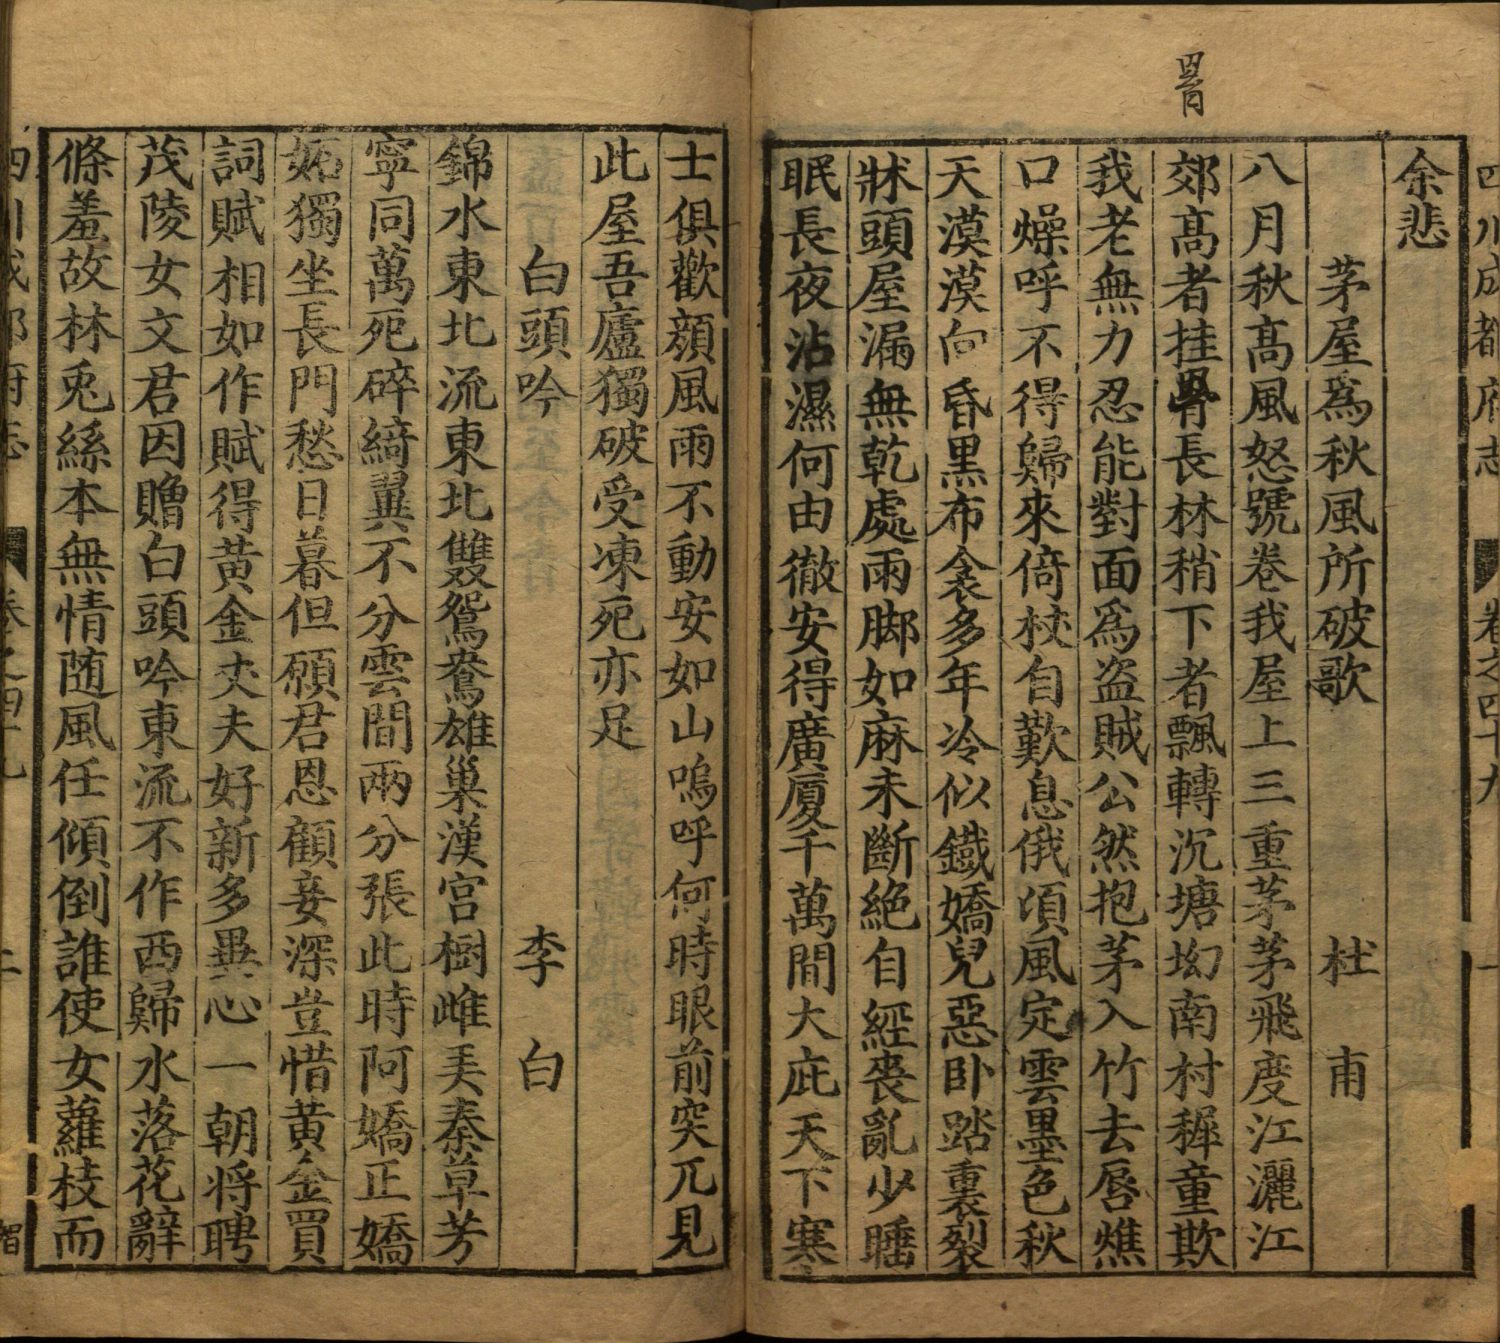 罥
四川成都府志 卷之四十九 一
余悲
茅屋爲秋風所破歌 杜甫
八月秋高風怒號卷我屋上三重茅茅飛度江灑江
郊高者挂骨長林稍下者飄轉沉塘坳南村稺童欺
我老無力忍能對面爲盗賊公然抱茅入竹去唇燋
口燥呼不得歸來倚杖自歎息俄頃風定雲墨色秋
天漠漠向昏黑布衾多年冷似鐵嬌兒惡卧踏裏裂
牀頭屋漏無乾處雨脚如麻未斷絶自經喪亂少睡
眠長夜沾濕何由徹安得廣厦千萬間大庇天下寒
士俱歡顔風雨不動安如山嗚呼何時眼前突兀見
此屋吾廬獨破受凍死亦足
白頭吟 李白
錦水東北流東北雙鴛鴦雄巢漢宮樹雌弄秦草芳
寧同萬死碎綺翼不分雲間兩分張此時阿嬌正嬌
妬獨坐長門愁日暮但願君恩顧妾深豈惜黄金買
詞賦相如作賦得黄金丈夫好新多異心一朝将聘
茂陵女文君因贈白頭吟東流不作西歸水落花辭
條羞故林兎絲本無情随風任傾倒誰使女蘿枝而